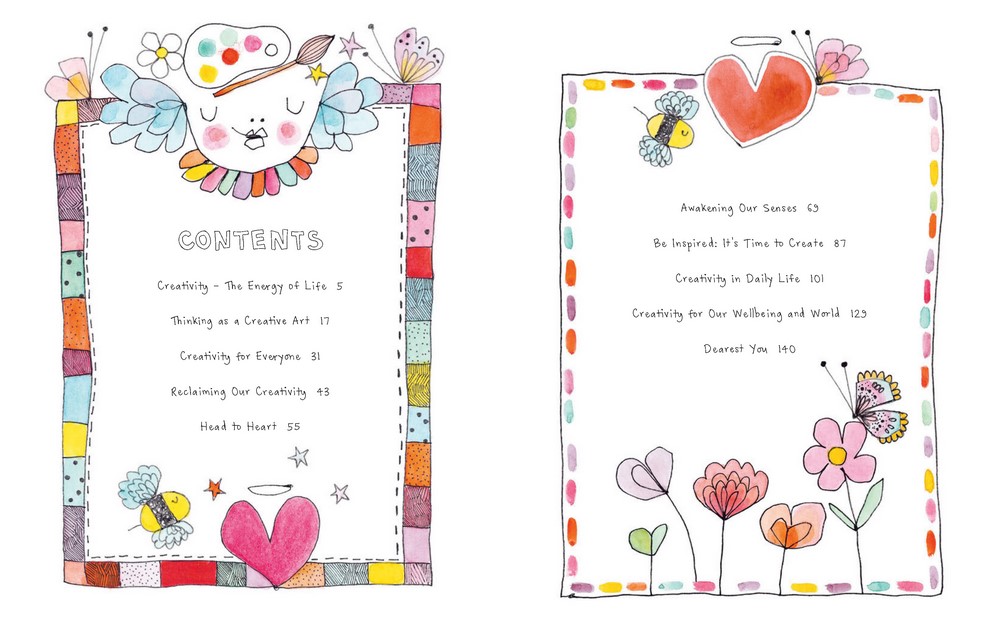 CONTENTS
Creativity – The Energy of Life 5
Thinking as a Creative Art 17
Creativity for Everyone 31
Reclaiming Our Creativity 43
Head to Heart 55
Awakening Our Senses 69
Be Inspired: It's Time to Create 87
Creativity in Daily Life 101
Creativity for Our Wellbeing and World 129
Dearest You 140